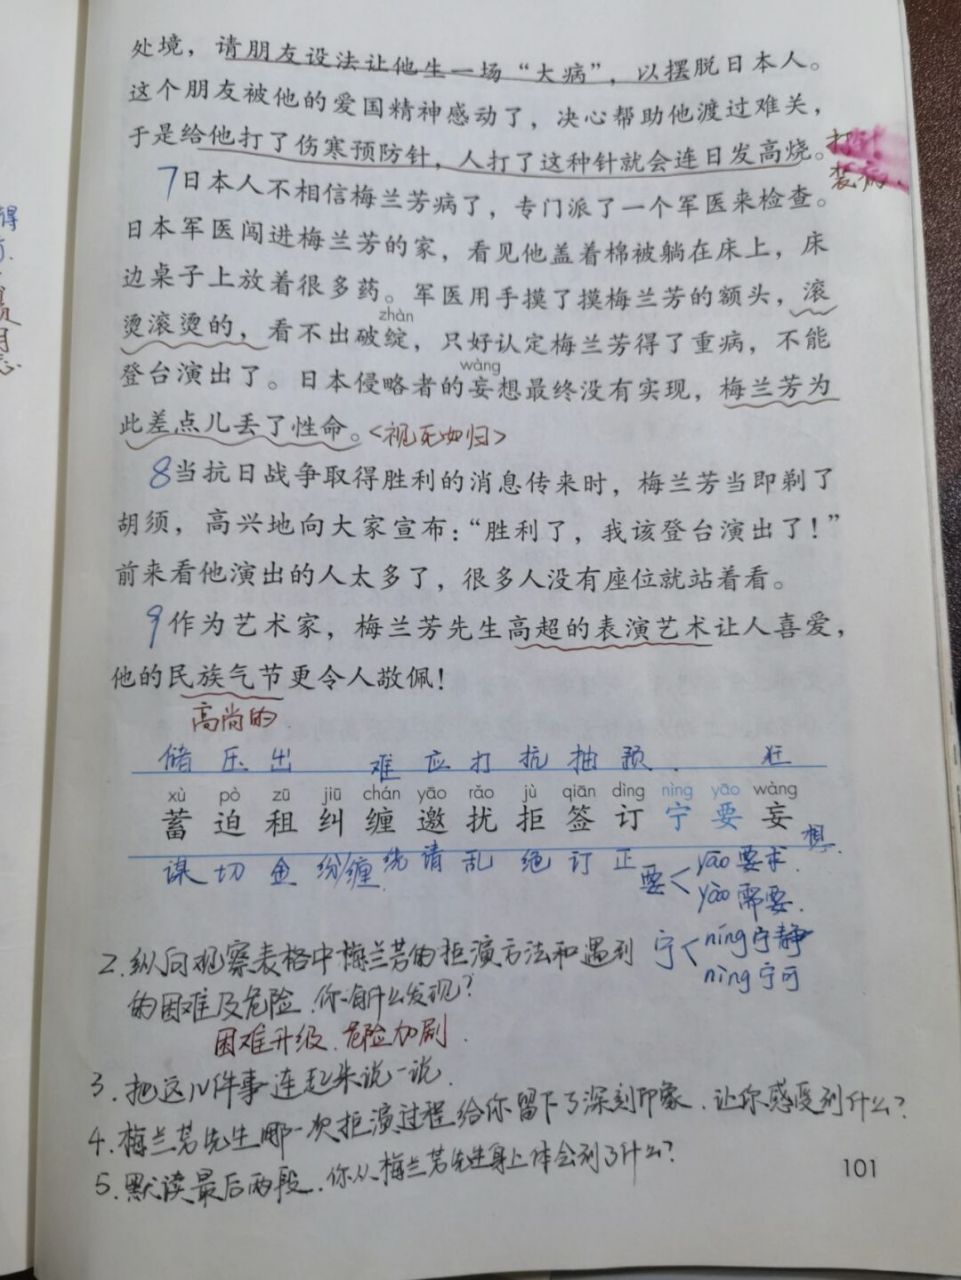 处境，请朋友设法让他生一场“大病”，以摆脱日本人。
这个朋友被他的爱国精神感动了，决心帮助他渡过难关，
于是给他打了伤寒预防针，人打了这种针就会连日发高烧。
打针
装病
7日本人不相信梅兰芳病了，专门派了一个军医来检查。
日本军医闯进梅兰芳的家，看见他盖着棉被躺在床上，床
边桌子上放着很多药。军医用手摸了摸梅兰芳的额头，滚
zhàn
烫滚烫的，看不出破绽，只好认定梅兰芳得了重病，不能
wàng
登台演出了。日本侵略者的妄想最终没有实现，梅兰芳为
此差点儿丢了性命。<视死如归>
8当抗日战争取得胜利的消息传来时，梅兰芳当即剃了
胡须，高兴地向大家宣布：“胜利了，我该登台演出了！”
前来看他演出的人太多了，很多人没有座位就站着看。
9作为艺术家，梅兰芳先生高超的表演艺术让人喜爱，
他的民族气节更令人敬佩！
高尚的
储 压 出 难 应 打 抗 抽 预 狂
xù pò zū jiū chán yāo rǎo jù qiān dìng nìng yāo wàng
蓄 迫 租 纠 缠 邀 扰 拒 签 订 宁 要 妄
想
谋 切 金 纷 缠 绕 请 乱 绝 订 正
要< yāo要求
yào需要
宁< níng宁静
nìng宁可
2.纵向观察表格中梅兰芳的拒演方法和遇到
的困难及危险，你有什么发现？
困难升级、危险加剧.
3.把这几件事连起来说一说.
4.梅兰芳先生哪一次拒演过程给你留下了深刻印象，让你感受到什么？
5.默读最后两段，你从梅兰芳先生身上体会到了什么？
101